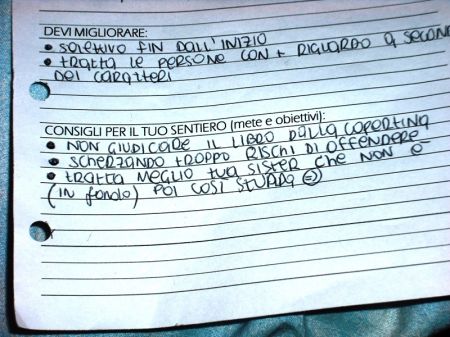 DEVI MIGLIORARE:
• SOLETIVO FIN DALL'INIZIO
• TRATTA LE PERSONE CON + RIGUARDO A SECOND
DEI CARATTERI
CONSIGLI PER IL TUO SENTIERO (mete e obiettivi):
• NON GIUDICARE IL LIBRO DALLA COPERTINA
• SCHERZANDO TROPPO RISCHI DI OFFENDERE
• TRATTA MEGLIO TUA SISTER CHE NON È
(IN fondo) POI COSÌ STUPIDA =)